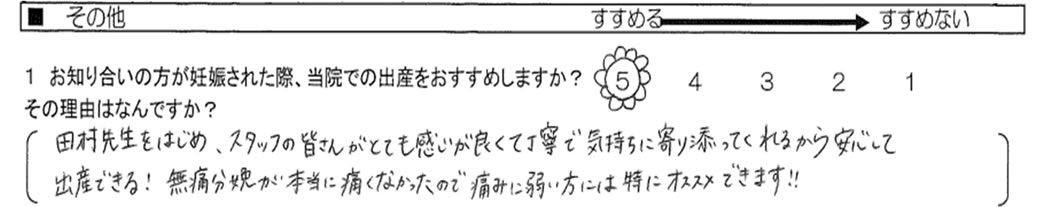 ■ その他 すすめる すすめない
1 お知り合いの方が妊娠された際、当院での出産をおすすめしますか？ 5 4 3 2 1
その理由はなんですか？
田村先生をはじめ、スタッフの皆さんがとても感じが良くて丁寧で気持ちに寄り添ってくれるから安心して
出産できる！無痛分娩が本当に痛くなかったので痛みに弱い方には特にオススメできます!!